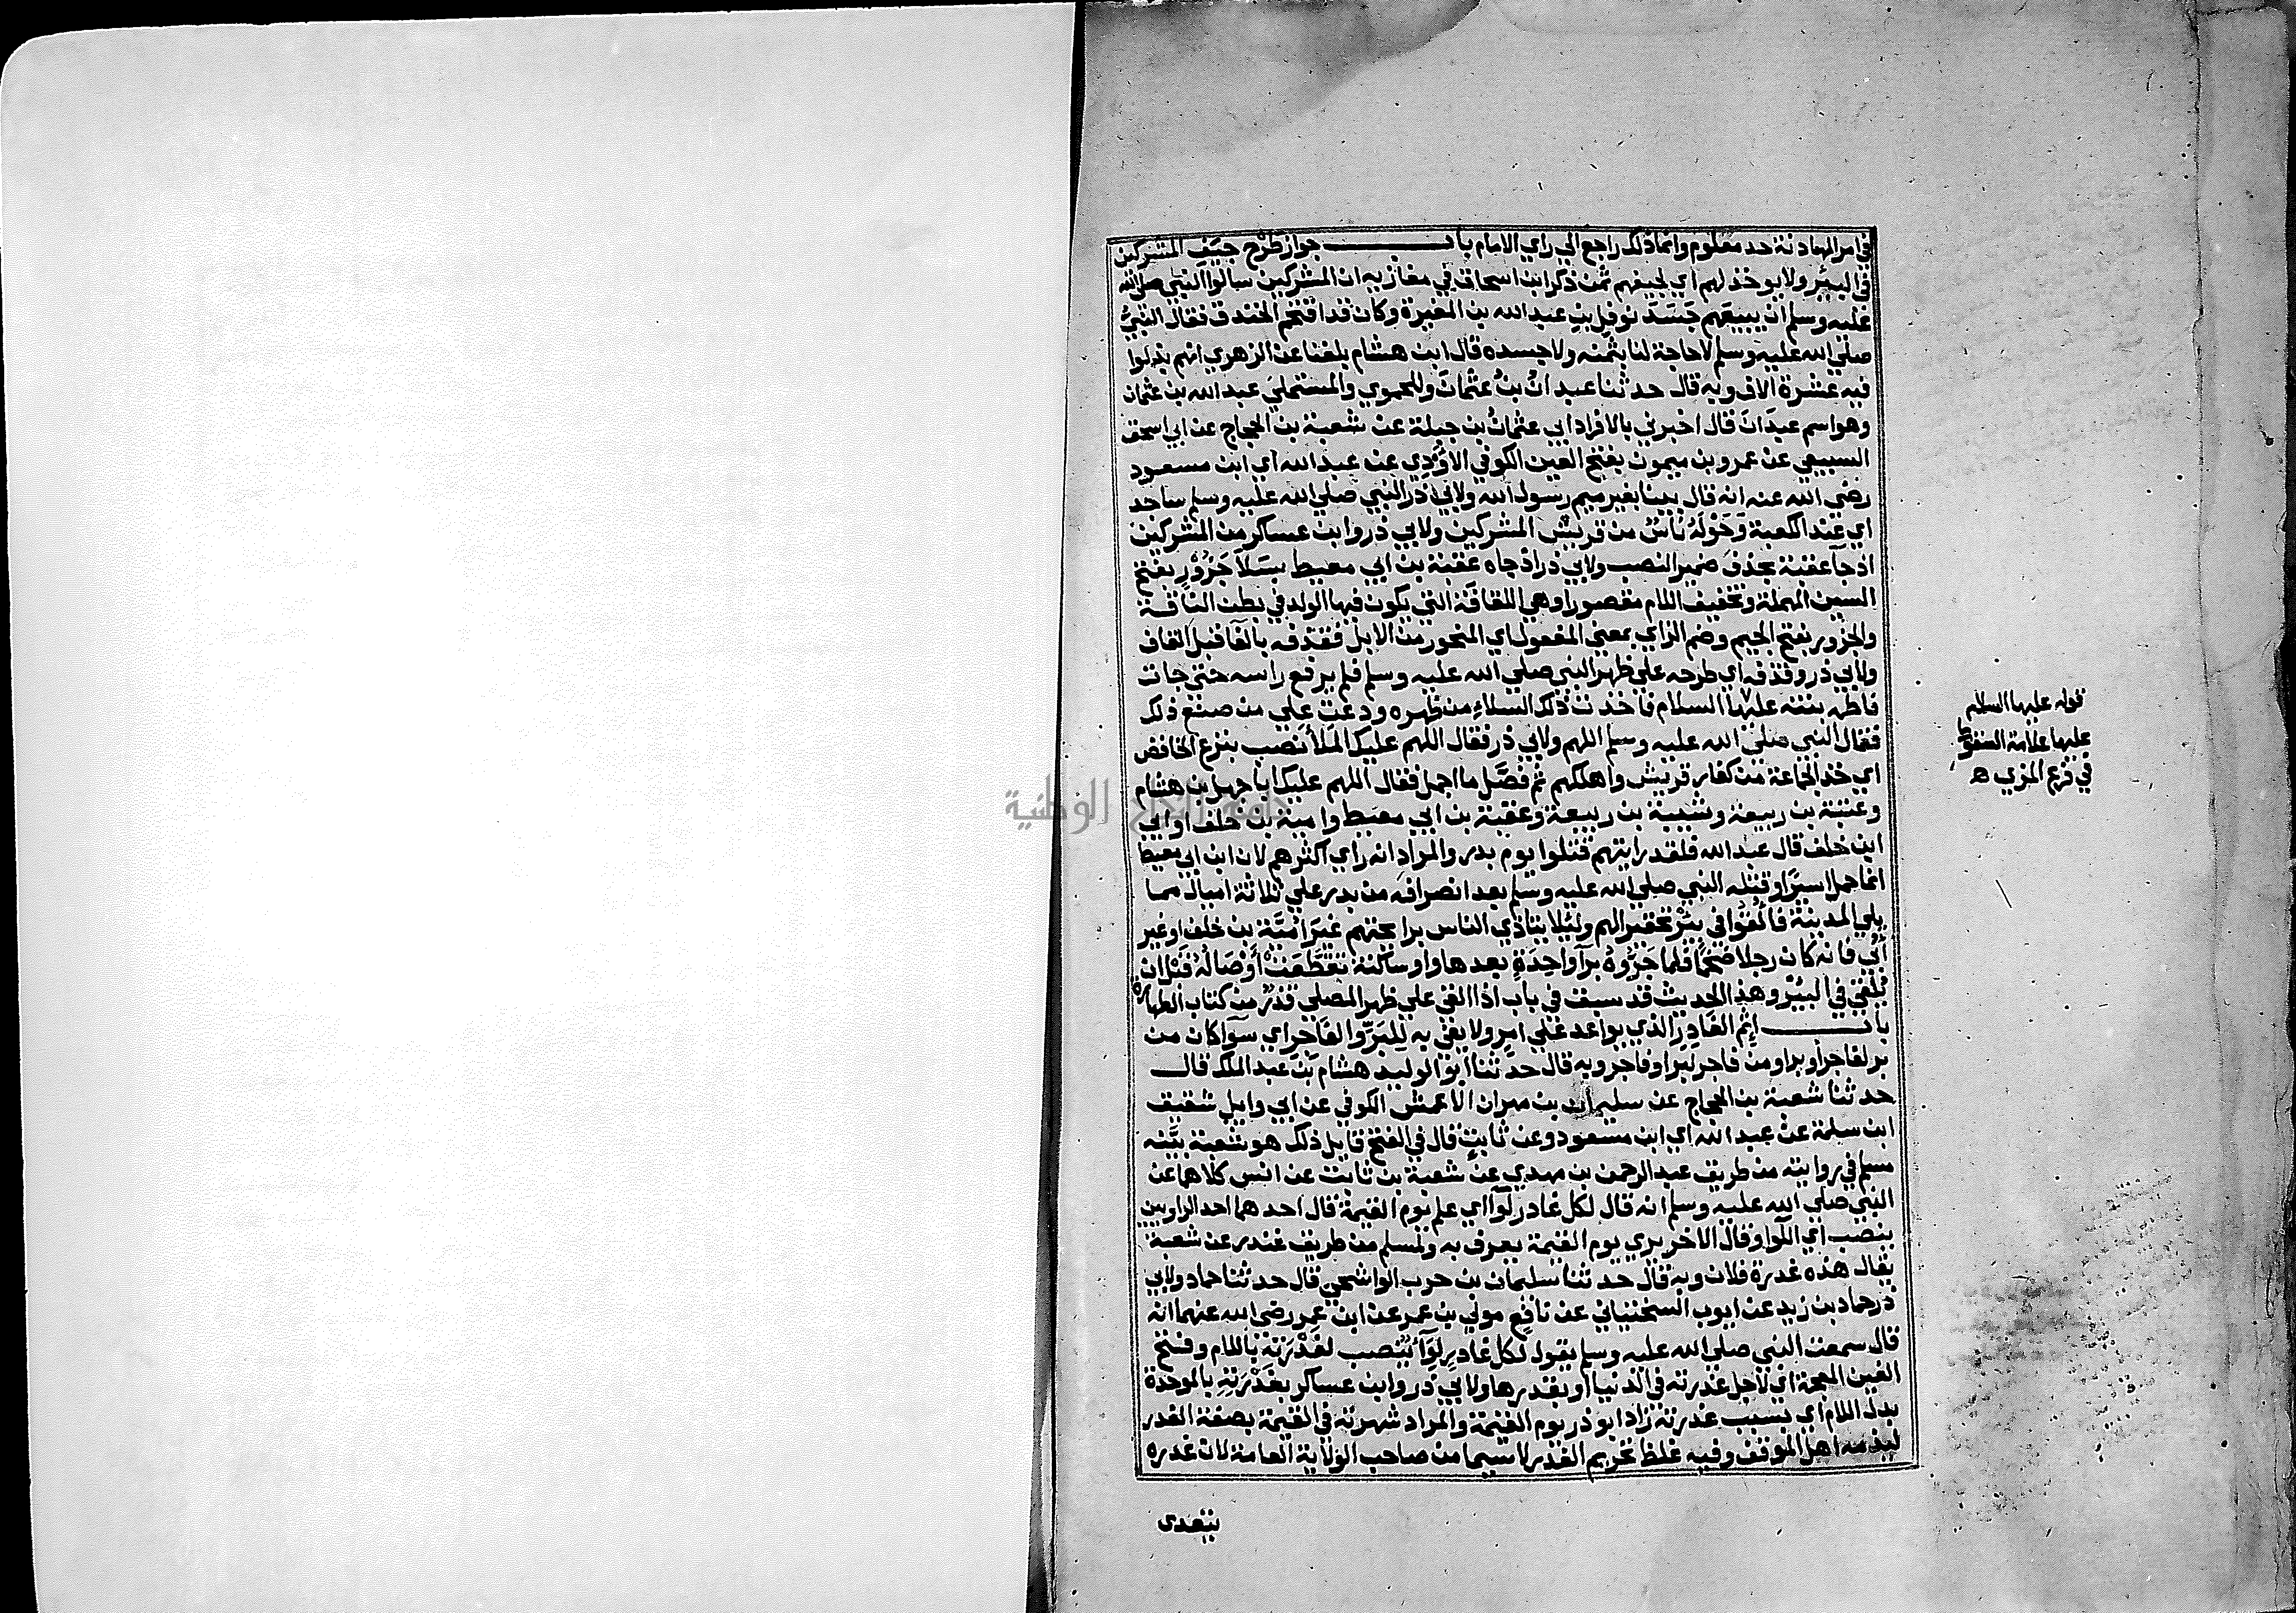 في امر المهادنة حد معلوم وانما ذلك راجع الي راي الامام باب جواز طرح جيف المشركين
في البئر ولا يوخذ لهم اي لجيفهم ثمن ذكر ابن اسحاق في مغازيه ان المشركين سالوا النبي صلي الله
عليه وسلم ان يبيعهم جسد نوفل بن عبد الله بن المغيرة وكان قد اقتحم الخندق فقال النبي
صلي الله عليه وسلم لا حاجة لنا بثمنه ولا جسده قال ابن هشام بلغنا عن الزهري انهم بذلوا
فيه عشرة الاف وبه قال حدثنا عبدان بن عثمان وللحموي والمستملي عبد الله بن عثمان
وهو اسم عبدان قال اخبرني بالافراد ابي عثمان بن جبلة عن شعبة بن الحجاج عن ابي اسحق
السبيعي عن عمرو بن ميمون بفتح العين الكوفي الاودي عن عبد الله اي ابن مسعود
رضي الله عنه انه قال بينا بغير ميم رسول الله ولابي ذر النبي صلي الله عليه وسلم ساجد
اي عند الكعبة وحوله ناس من قريش المشركين ولابي ذر وابن عساكر من المشركين
اذ جآ عقبة بحذف ضمير النصب ولابي ذر اذ جاه عقبة بن ابي معيط بسلا جزور بفتح
السين المهملة وتخفيف اللام مقصورا وهي اللفافة التي يكون فيها الولد في بطن الناقة
والجزور بفتح الجيم وضم الزاي بمعني المفعول اي المنحور من الابل فقذفه بالفا قبل القاف
ولابي ذر وقذفه اي طرحه علي ظهر النبي صلي الله عليه وسلم فلم يرفع راسه حتي جات
فاطمه بنته عليها السلام فاخذت ذلك السلاء من ظهره ودعت علي من صنع ذلك
فقال النبي صلي الله عليه وسلم اللهم ولابي ذر فقال اللهم عليك الملأ نصب بنزع الخافض
اي خذ الجماعة من كفار قريش واهلكهم ثم فصل ما اجمل فقال اللهم عليك ابا جهل بن هشام
وعتبة بن ربيعة وشيبة بن ربيعة وعقبة بن ابي معيط وامية بن خلف او ابي
ابن خلف قال عبد الله فلقد رايتهم قتلوا يوم بدر والمراد انه راي اكثرهم لان ابن ابي معيط
انما حمل اسيرا وقتله النبي صلي الله عليه وسلم بعد انصرافه من بدر علي ثلاثة اميال مما
يلي المدينة فالقوا في بئر تحقيرا لهم ولئلا يتاذي الناس برائحتهم غير امية بن خلف او غير
أبي فانه كان رجلا ضخما فلما جروه برآ واحدة بعدها واو ساكنة تقطعت أوصاله قبل ان
يلقي في البئر وهذا الحديث قد سبق في باب اذا القي علي ظهر المصلي قذر من كتاب الطهارة
باب اثم الغادر الذي يواعد علي امر ولا يفي به للبر والفاجر اي سوآ كان من
بر لفاجر او بر او من فاجر لبر او فاجر وبه قال حدثنا ابو الوليد هشام بن عبد الملك قال
حدثنا شعبة بن الحجاج عن سليمان بن مهران الاعمش الكوفي عن ابي وايل شقيق
ابن سلمة عن عبد الله اي ابن مسعود وعن ثابت قال في الفتح قايل ذلك هو شعبة بينه
مسلم في روايته من طريق عبد الرحمن بن مهدي عن شعبة بن ثابت عن انس كلاهما عن
النبي صلي الله عليه وسلم انه قال لكل غادر لوآ اي علم يوم القيمة قال احدهما احد الراويين
ينصب اي اللوا وقال الاخر يري يوم القيمة يعرف به ولمسلم من طريق غندر عن شعبة
يقال هذه غدرة فلان وبه قال حدثنا سليمان بن حرب الواشحي قال حدثنا حماد ولابي
ذر حماد بن زيد عن ايوب السختياني عن نافع مولي بن عمر عن ابن عمر رضي الله عنهما انه
قال سمعت النبي صلي الله عليه وسلم يقول لكل غادر لوآ ينصب لغدرته باللام وفتح
الغين المعجمة اي لاجل غدرته في الدنيا او بقدرها ولابي ذر وابن عساكر بغدرته بالموحدة
بدل اللام اي بسبب غدرته زاد ابو ذر يوم القيمة والمراد شهرته في القيمة بصفة الغدر
ليذمه اهل الموقف وفيه غلظ تحريم الغدر لا سيما من صاحب الولاية العامة لان غدره
يتعدي
قوله عليها السلام
عليها علامة السقوط
في فرع المزي ه
جامعة النجاح الوطنية